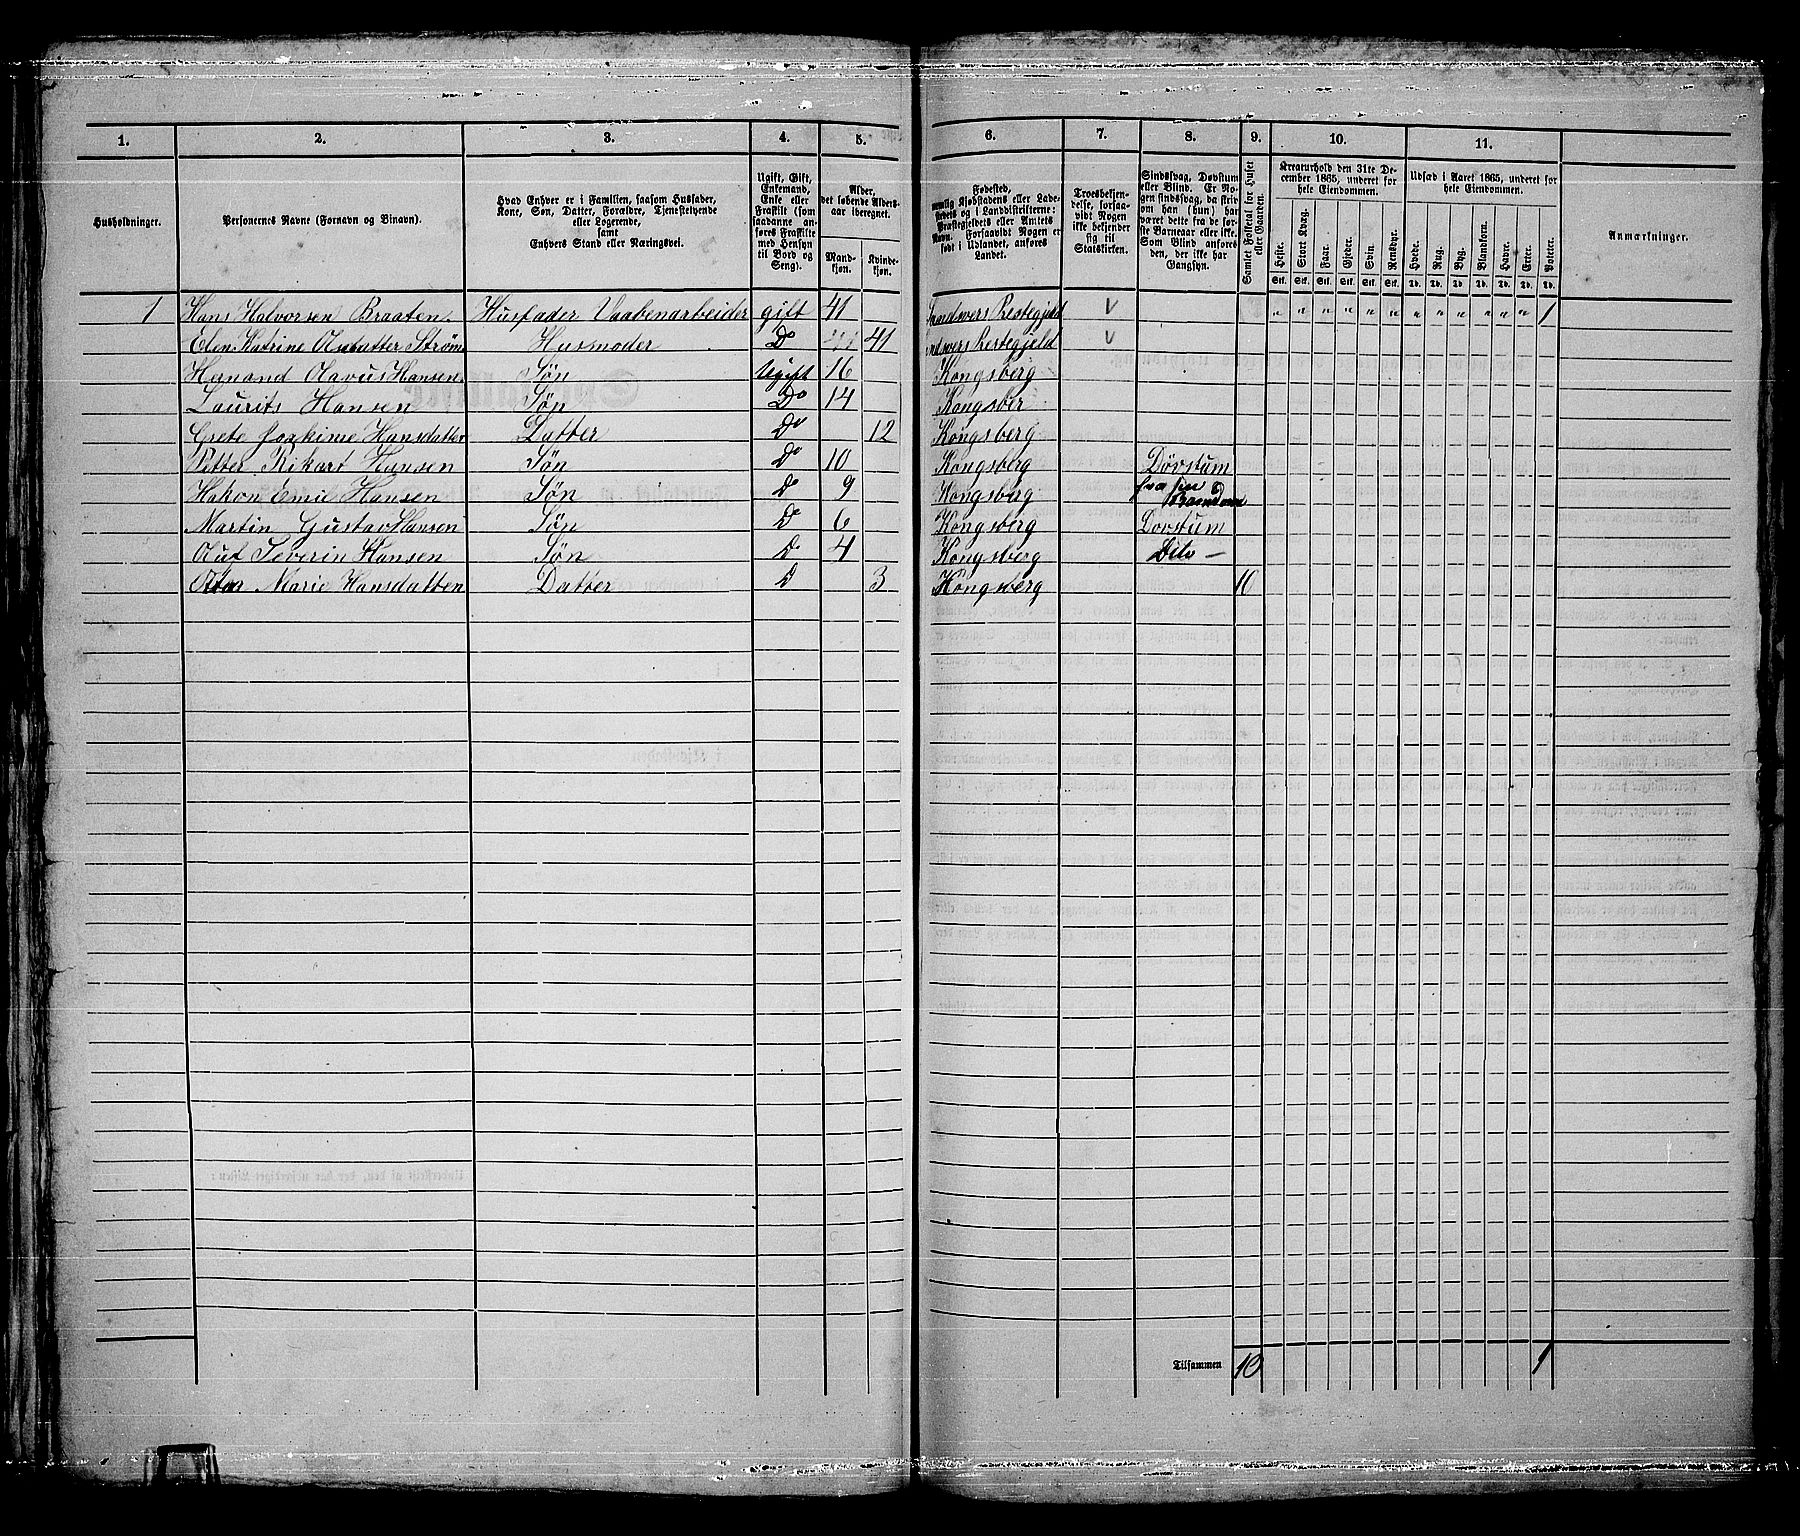 1. 2. 3. 4. 5. 6. 7. 8. 9. 10. 11.
Husholdninger.
Personernes Navne (Fornavn og Binavn).
Hvad Enhver er i Familien, saasom Husfader,
Kone, Søn, Datter, Forældre, Tjenestetyende
eller Logerende,
samt
Enhvers Stand eller Næringsvei.
Ugift, Gift,
Enkemand,
Enke eller
Fraskilt (som
saadanne an-
føres Fraskilte
med Hensyn
til Bord og
Seng).
Alder,
det løbende Alders-
aar iberegnet.
Mand-
kjøn.
Kvinde-
kjøn.
Fødested,
nemlig Kjøbstadens eller Lade-
stedets og i Landdistrikterne:
Præstegjeldets eller Amtets
Navn. Forsaavidt Nogen er
født i Udlandet, anføres
Landet.
Troesbekjen-
delse, forsaa-
vidt Nogen
ikke bekjender
sig til
Statskirken.
Sindssvag, Døvstum
eller Blind. Er No-
gen sindssvag, da skriv
om han (hun) har
været dette fra de før-
ste Barneaar eller ikke.
Som Blind anføres
den, der ikke har
Gangsyn.
Samlet Folketal for Huset
eller Gaarden.
Kreaturhold den 31te De-
cember 1865, underet for
hele Eiendommen.
Heste.
Stort Kvæg.
Faar.
Gjeder.
Svin.
Rensdyr.
Stk. Stk. Stk. Stk. Stk. Stk.
Udsæd i Aaret 1865, underet for
hele Eiendommen.
Hvede.
Rug.
Byg.
Blandkorn.
Havre.
Erter.
Poteter.
Td. Td. Td. Td. Td. Td. Td.
Anmærkninger.
1 Hans Halvorsen Braaten Husfader Vaabenarbeider gift 41 Sandsvers Prestegjeld v " " " " " " " " " " " " 1
Elen Katrine Strøm Husmoder Do 41 Prestegjeld v
Olavus Hansen Søn Ugift 16 Kongsberg
Laurits Hansen Søn Do 14 Kongsber
Grete Joakime Hansdatter Datter Do 12 Kongsberg
Petter Rikart Hansen Søn Do 10 Kongsberg Døvstum
Hakon Emil Hansen Søn Do 9 Kongsberg fra sin Barndom
Martin Gustav Hansen Søn Do 6 Kongsberg Dovstum
Severin Hansen Søn Do 4 Kongsberg Dito -
Marie Hansdatter Datter D 3 Kongsberg 10
Tilsammen 10 1